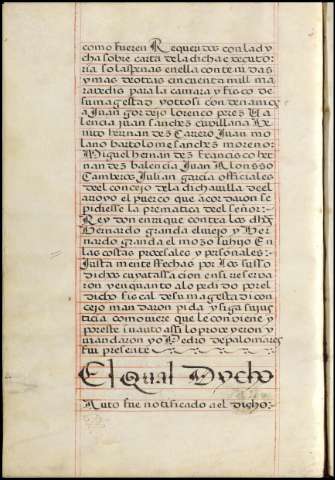 como fueren Requeridos con la dy
cha sobre carta de la dicha executo
ria so las penas en ella contenidas
y mas de otras cincuenta mill ma
ravedis para la camara y fisco de
su magestad y otrosi condenamos
a Juan gordejo lorenco perez Va
lencia juan sanches
hernan des Carrero Juan mo
lano bartolome sanches moreno:
Miguel hernandes francisco her
nan des balencia Juan Alonsso
Camberos Julian garcia officiales
del concejo de la dicha villa de el
arroyo el puerco que acordaron se
pidiesse la prematica del señor:
Rey don enrique contra los dhos
Bernardo granda el viejo y Ber
nardo granda el mozo su hijo En
las costas procesales y personales:
Justa mente fechas por los susso
dichos cuya tassacion en si reserva
ron y en quanto a lo pedido por el
dicho fiscal de su magestad con
cejo mandaron pida y siga su jus
ticia como viere que le conviene y
por este su auto assi lo proveyeron y
mandaron yo Pedro de palomares
fui presente
El Qual Dycho
Auto fue notificado a el dicho: